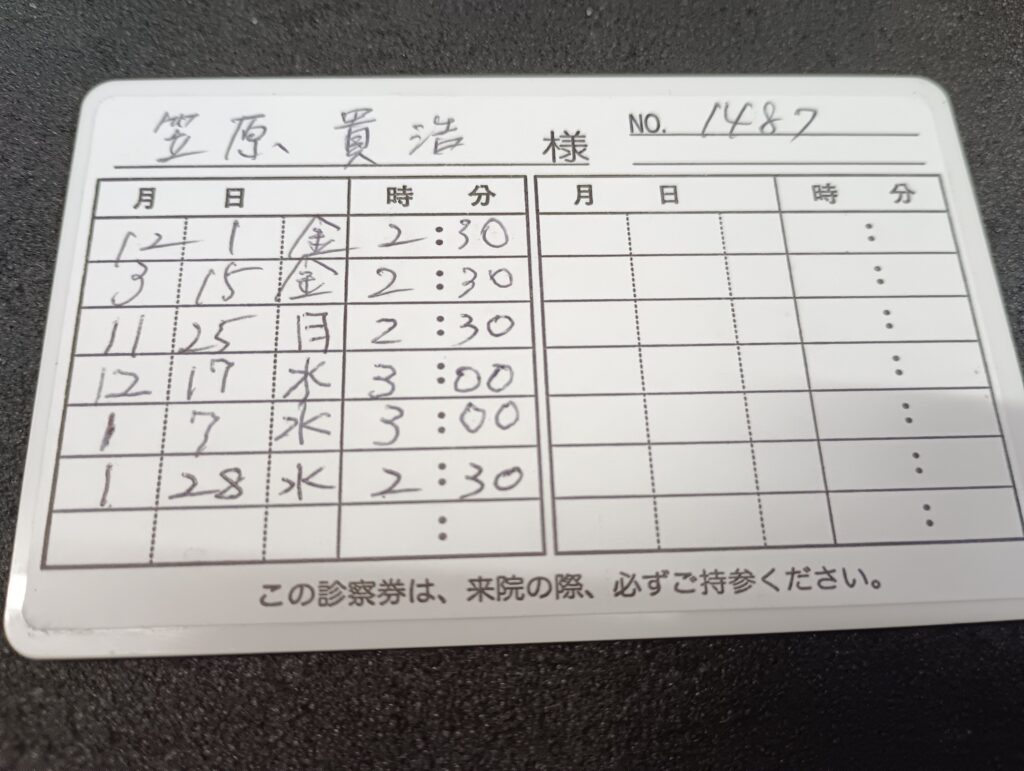 笠原 貴浩 様 NO. 1487
月 日 時 分 月 日 時 分
12 1 金 2:30 :
3 15 金 2:30 :
11 25 月 2:30 :
12 17 水 3:00 :
1 7 水 3:00 :
1 28 水 2:30 :
: :
この診察券は、来院の際、必ずご持参ください。